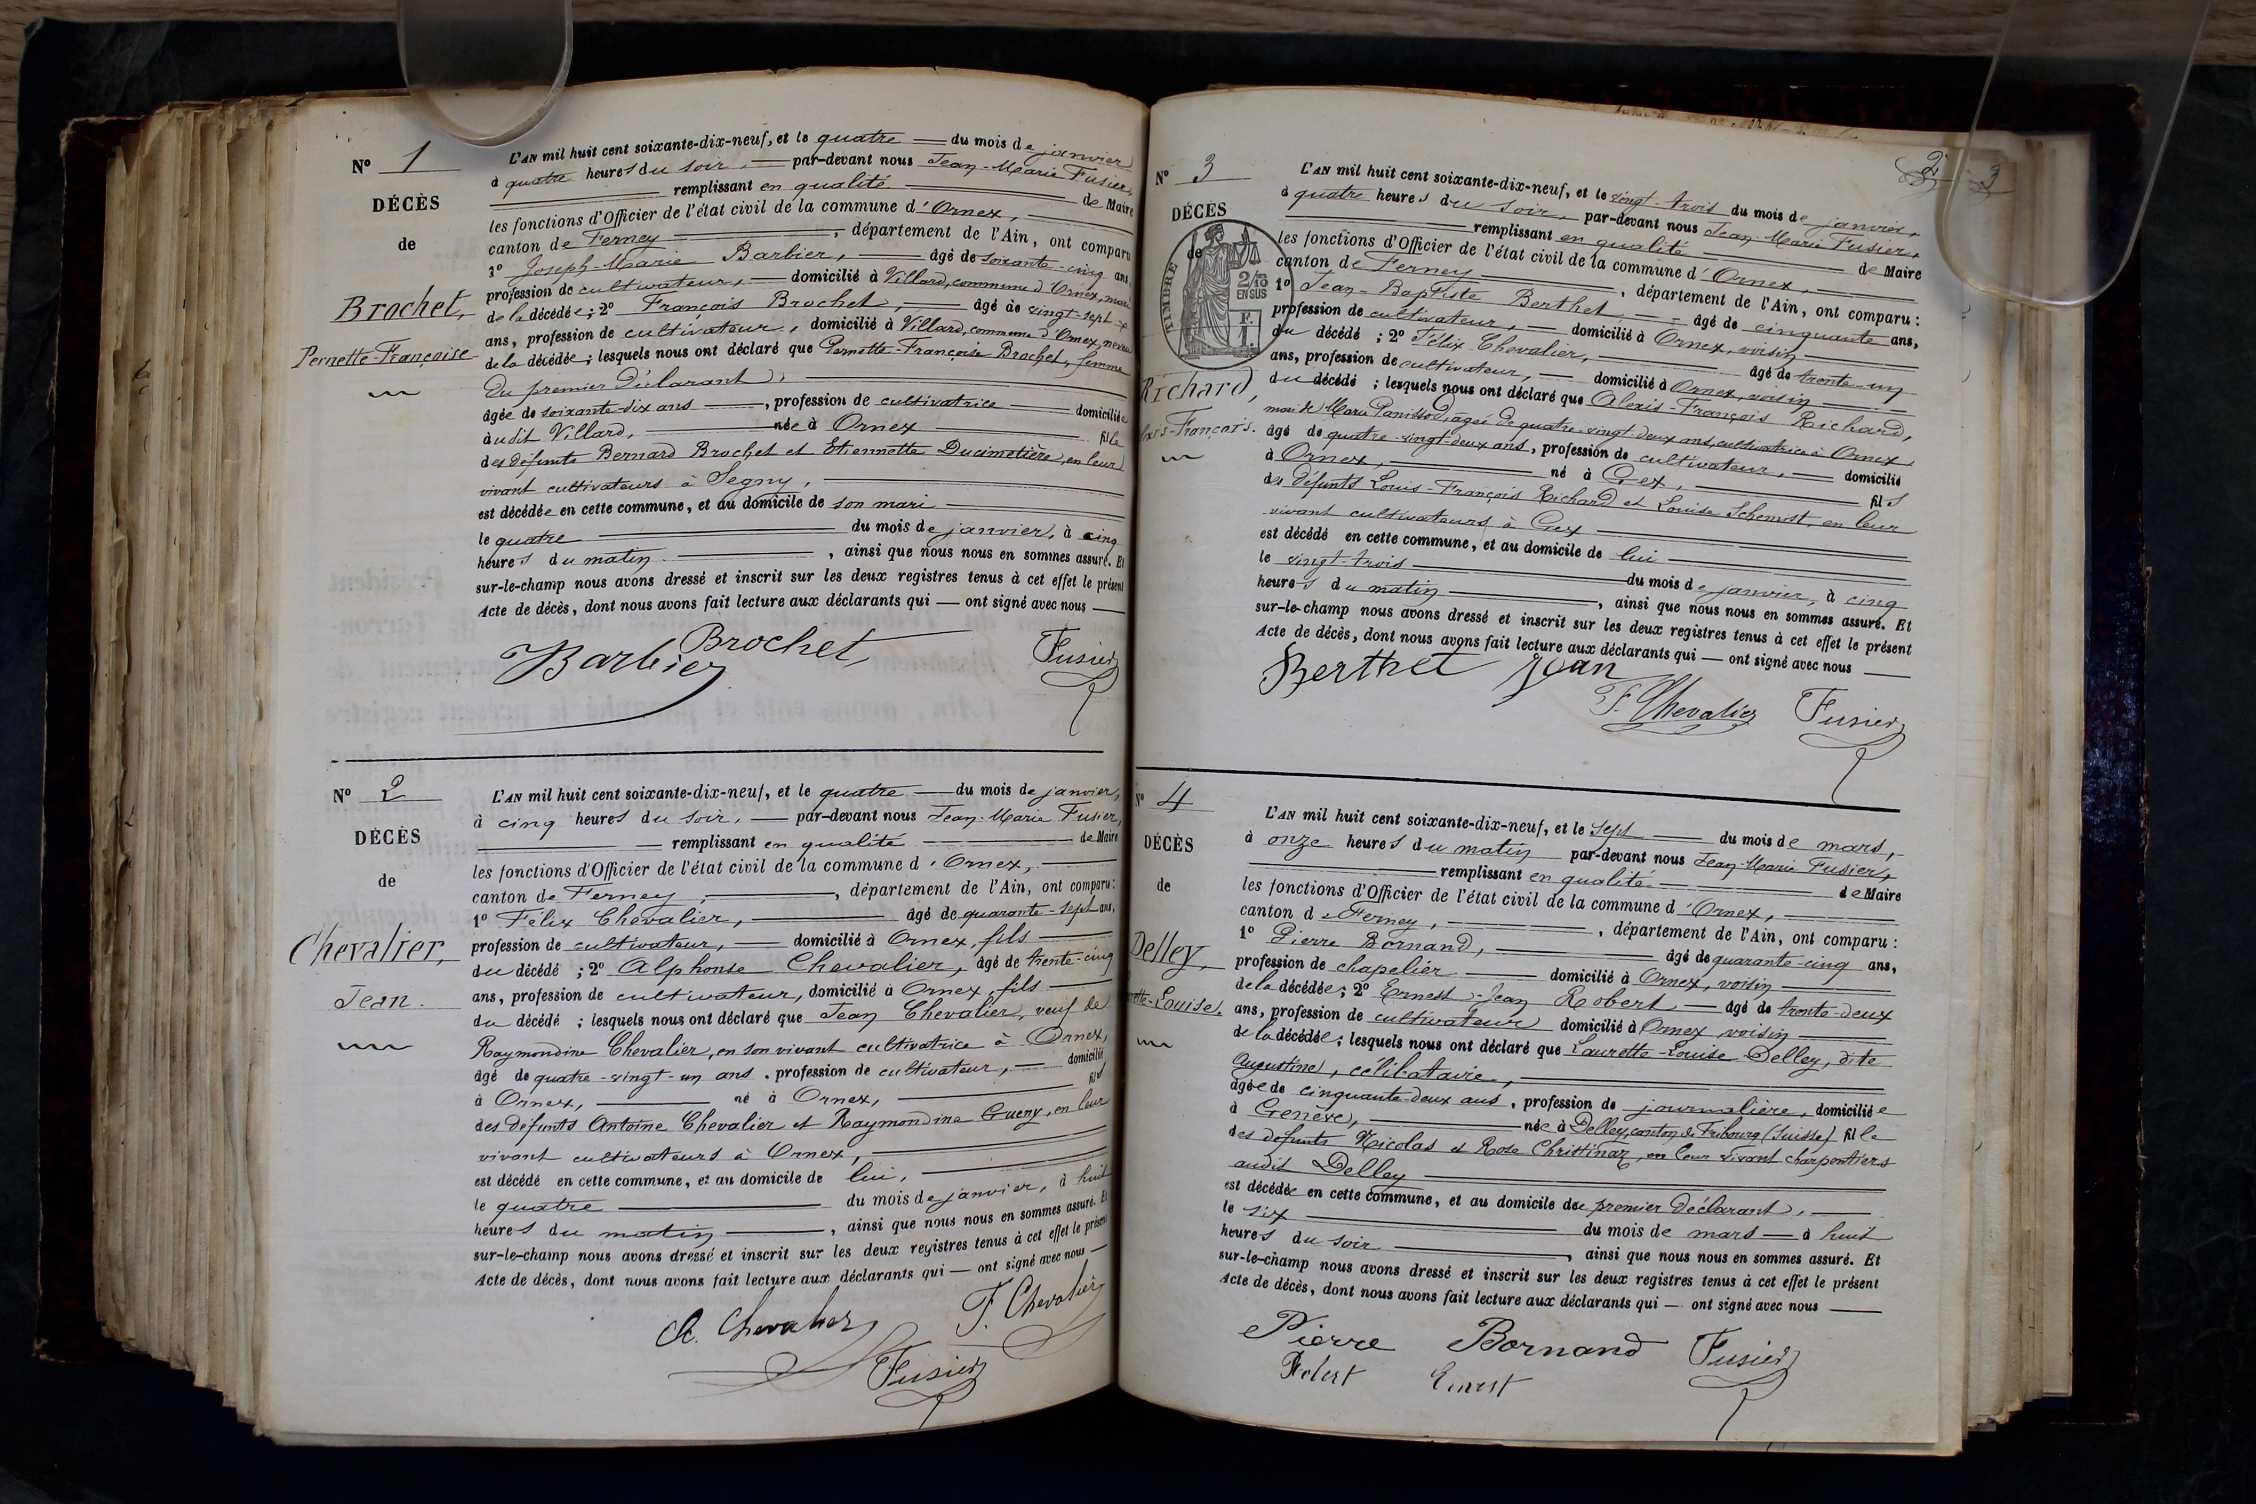 N° 1
DÉCÈS
de
Brochet,
Pernette-Françoise
L'AN mil huit cent soixante-dix-neuf, et le quatre du mois de janvier
à quatre heures du soir, par-devant nous Jean-Marie Fusier,
remplissant en qualité de Maire
les fonctions d'Officier de l'état civil de la commune d'Ornex,
canton de Ferney, département de l'Ain, ont comparu
1° Joseph-Marie Barbier, âgé de soixante-cinq ans,
profession de cultivateur, domicilié à Villard, commune d'Ornex, mari
de la décédée ; 2° François Brochet, âgé de vingt-sept
ans, profession de cultivateur, domicilié à Villard, commune d'Ornex, neveu
de la décédée ; lesquels nous ont déclaré que Pernette-Françoise Brochet, femme
du premier déclarant,
âgée de soixante-dix ans, profession de cultivatrice domiciliée
audit Villard, née à Ornex fille
des défunts Bernard Brochet et Etiennette Ducimetière, en leur
vivant cultivateurs à Segny,
est décédée en cette commune, et au domicile de son mari
le quatre du mois de janvier, à cinq
heures du matin, ainsi que nous nous en sommes assuré. Et
sur-le-champ nous avons dressé et inscrit sur les deux registres tenus à cet effet le présent
Acte de décès, dont nous avons fait lecture aux déclarants qui — ont signé avec nous
Barbier Brochet Fusier
N° 2
DÉCÈS
de
Chevalier,
Jean.
L'AN mil huit cent soixante-dix-neuf, et le quatre du mois de janvier,
à cinq heures du soir, par-devant nous Jean-Marie Fusier,
remplissant en qualité de Maire
les fonctions d'Officier de l'état civil de la commune d'Ornex,
canton de Ferney, département de l'Ain, ont comparu :
1° Félix Chevalier, âgé de quarante-sept ans,
profession de cultivateur, domicilié à Ornex, fils
du décédé ; 2° Alphonse Chevalier, âgé de trente-cinq
ans, profession de cultivateur, domicilié à Ornex, fils
du décédé ; lesquels nous ont déclaré que Jean Chevalier, veuf de
Raymondine Chevalier, en son vivant cultivatrice à Ornex,
âgé de quatre-vingt-un ans, profession de cultivateur, domicilié
à Ornex, né à Ornex, fils
des défunts Antoine Chevalier et Raymondine Gueny, en leur
vivant cultivateurs à Ornex,
est décédé en cette commune, et au domicile de lui,
le quatre du mois de janvier, à huit
heures du matin, ainsi que nous nous en sommes assuré. Et
sur-le-champ nous avons dressé et inscrit sur les deux registres tenus à cet effet le présent
Acte de décès, dont nous avons fait lecture aux déclarants qui — ont signé avec nous —
A. Chevalier F. Chevalier
Fusier
2 3
N° 3
DÉCÈS
de
TIMBRE
2/10
EN SUS
F.
1.
Richard,
François.
L'AN mil huit cent soixante-dix-neuf, et le vingt-trois du mois de janvier,
à quatre heures du soir, par-devant nous Jean-Marie Fusier,
remplissant en qualité de Maire
les fonctions d'Officier de l'état civil de la commune d'Ornex,
canton de Ferney, département de l'Ain, ont comparu :
1° Jean-Baptiste Berthet, âgé de cinquante ans,
profession de cultivateur, domicilié à Ornex, voisin
du décédé ; 2° Félix Chevalier, âgé de trente-un
ans, profession de cultivateur, domicilié à Ornex, voisin
du décédé ; lesquels nous ont déclaré que Alexis-François Richard,
mari de Marie Panissod, âgée de quatre-vingt-deux ans, cultivatrice à Ornex,
âgé de quatre-vingt-deux ans, profession de cultivateur, domicilié
à Ornex, né à Gex, fils
des défunts Louis-François Richard et Louise en leur
vivant cultivateurs à Gex
est décédé en cette commune, et au domicile de lui
le vingt-trois du mois de janvier, à cinq
heures du matin, ainsi que nous nous en sommes assuré. Et
sur-le-champ nous avons dressé et inscrit sur les deux registres tenus à cet effet le présent
Acte de décès, dont nous avons fait lecture aux déclarants qui — ont signé avec nous
Berthet Jean
F. Chevalier Fusier
N° 4
DÉCÈS
de
Delley,
Louise.
L'AN mil huit cent soixante-dix-neuf, et le sept du mois de mars,
à onze heures du matin par-devant nous Jean-Marie Fusier,
remplissant en qualité de Maire
les fonctions d'Officier de l'état civil de la commune d'Ornex,
canton de Ferney, département de l'Ain, ont comparu :
1° Pierre Bornand, âgé de quarante-cinq ans,
profession de chapelier domicilié à Ornex, voisin
de la décédée ; 2° Ernest-Jean Robert âgé de trente-deux
ans, profession de cultivateur domicilié à Ornex voisin
de la décédée ; lesquels nous ont déclaré que Laurette-Louise Delley, dite
Augustine, célibataire,
âgée de cinquante-deux ans, profession de journalière, domiciliée
à Genève, née à Delley, canton de Fribourg (Suisse) fille
des défunts Nicolas et Rose Christinaz, en leur vivant charpentiers
audit Delley
est décédée en cette commune, et au domicile du premier déclarant,
le six du mois de mars — à huit
heures du soir, ainsi que nous nous en sommes assuré. Et
sur-le-champ nous avons dressé et inscrit sur les deux registres tenus à cet effet le présent
Acte de décès, dont nous avons fait lecture aux déclarants qui — ont signé avec nous
Pierre Bornand Fusier
Robert Ernest